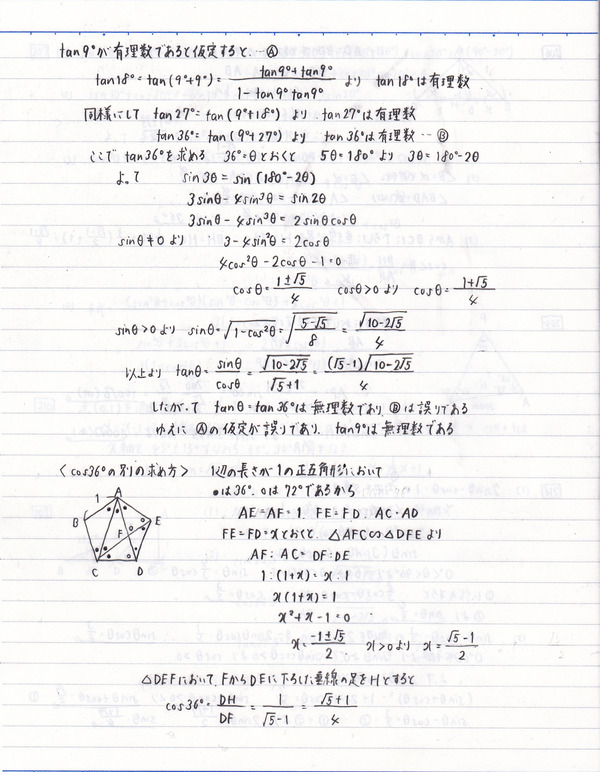 tan9°が有理数であると仮定すると…Ⓐ
tan18°=tan(9°+9°)=(tan9°+tan9°)/(1-tan9°tan9°) より tan18°は有理数
同様にして tan27°=tan(9°+18°)より tan27°は有理数
tan36°=tan(9°+27°)より tan36°は有理数…Ⓑ
ここで tan36°を求める 36°=θとおくと 5θ=180°より 3θ=180°-2θ
よって sin3θ=sin(180°-2θ)
3sinθ-4sin³θ=sin2θ
3sinθ-4sin³θ=2sinθcosθ
sinθ≠0より 3-4sin²θ=2cosθ
4cos²θ-2cosθ-1=0
cosθ=(1±√5)/4 cosθ>0より cosθ=(1+√5)/4
sinθ>0より sinθ=√(1-cos²θ)=√((5-√5)/8)=√(10-2√5)/4
以上より tanθ=sinθ/cosθ=√(10-2√5)/(√5+1)=(√5-1)√(10-2√5)/4
したがって tanθ=tan36°は無理数であり、Ⓑは誤りである
ゆえに Ⓐの仮定が誤りであり、tan9°は無理数である
〈cos36°の別の求め方〉 1辺の長さが1の正五角形において
●は36°、○は72°であるから
AE=AF=1, FE=FD, AC=AD
FE=FD=xとおくと、△AFC∽△DFEより
AF:AC=DF:DE
1:(1+x)=x:1
x(1+x)=1
x²+x-1=0
x=(-1±√5)/2 x>0より x=(√5-1)/2
A
1
B
E
F
C
D
△DEFにおいて、FからDEに下ろした垂線の足をHとすると
cos36°=DH/DF=1/(√5-1)=(√5+1)/4